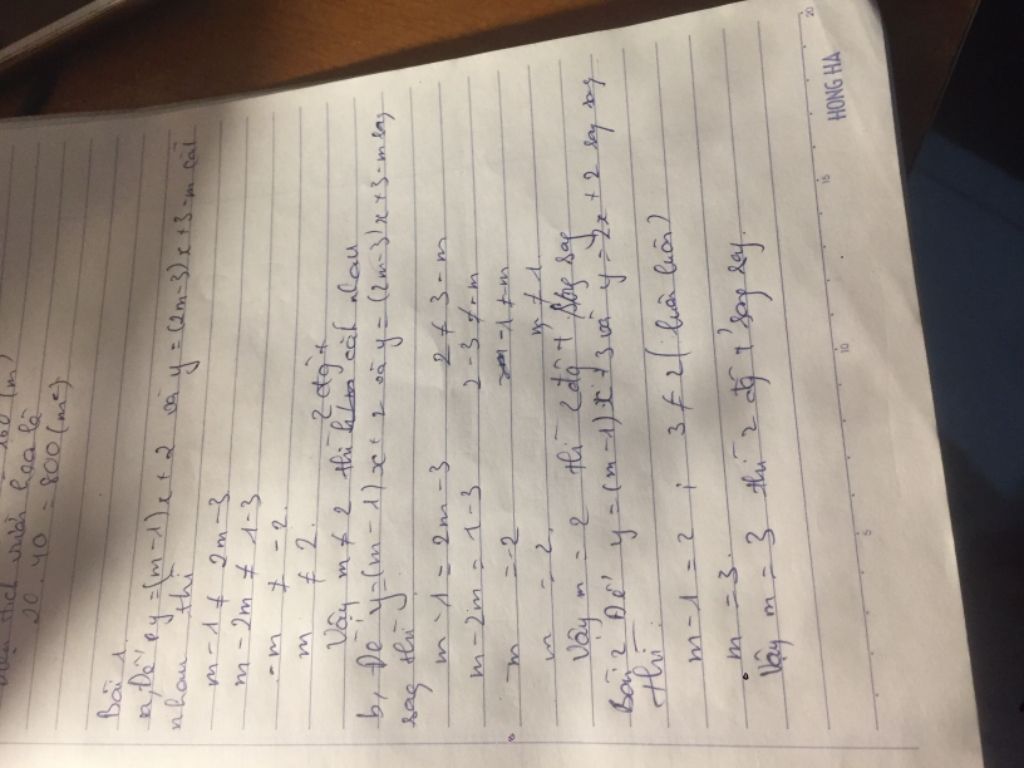 diện tích vườn hoa là
20 . 40 = 800 (m²)
Bài 1
a, Để y=(m-1)x+2 và y=(2m-3)x+3-m cắt
nhau thì
m-1 ≠ 2m-3
m-2m ≠ 1-3
-m ≠ -2
m ≠ 2
Vậy m ≠ 2 thì 2 đgt cắt nhau
b, Để y=(m-1)x+2 và y=(2m-3)x+3-m sog
sog thì
m-1 = 2m-3 2 ≠ 3-m
m-2m = 1-3 2-3 ≠ -m
-m = -2 -1 ≠ -m
m = 2 m ≠ 1
Vậy m = 2 thì 2 đgt sog sog
Bài 2 Để y=(m-1)x+3 và y=2x+2 sog sog
thì
m-1 = 2 ; 3 ≠ 2 (luôn luôn)
m = 3
Vậy m = 3 thì 2 đgt sog sog.
HONG HA
5 10 15 20